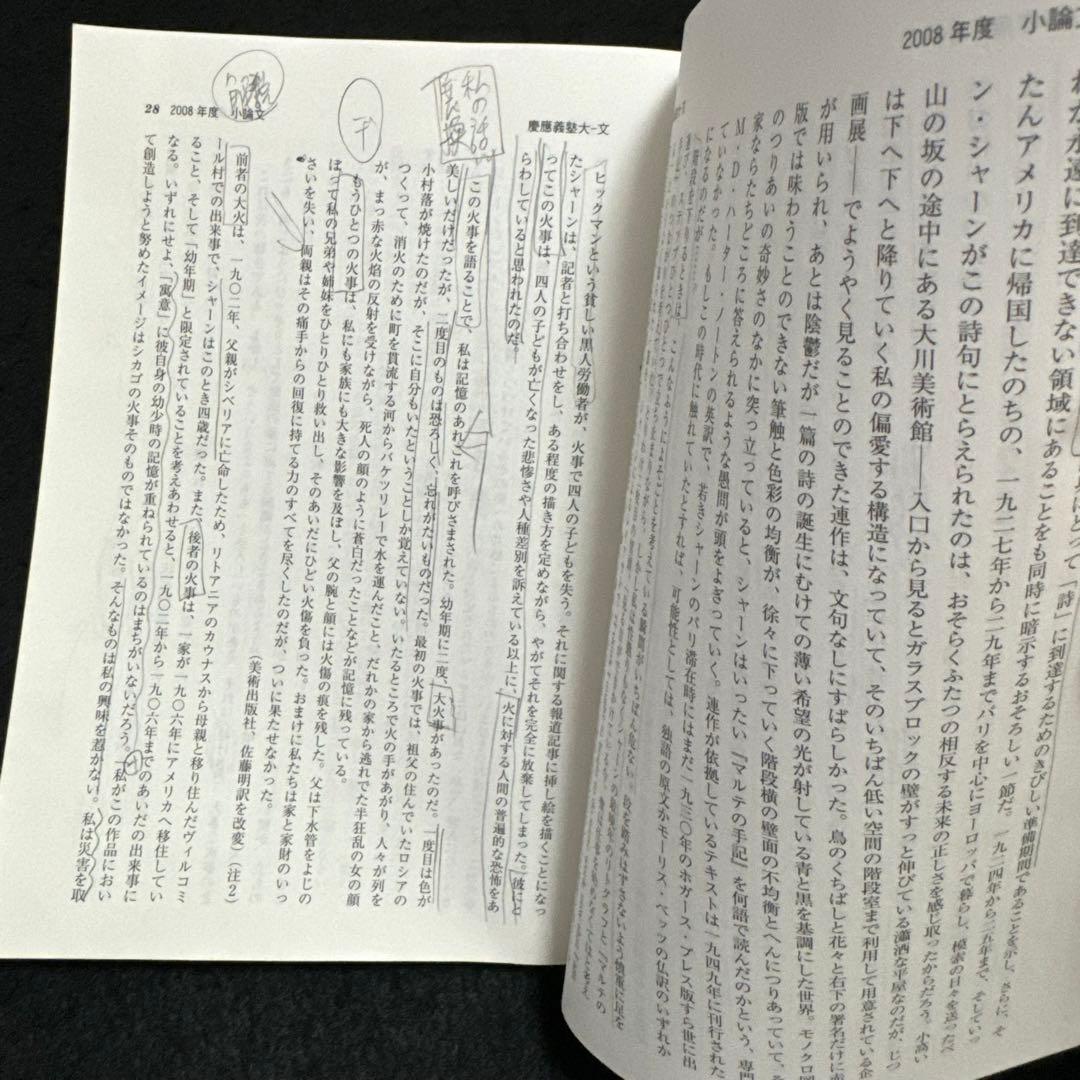 28 2008年度 小論文
慶應義塾大-文
解説
私の話
ヒックマンという貧しい黒人労働者が、火事で四人の子どもを失う。それに関する報道記事に挿し絵を描くことになっ
たシャーンは、記者と打ち合わせをし、ある程度の描き方を定めながら、やがてそれを完全に放棄してしまった。彼にと
ってこの火事は、四人の子どもが亡くなった悲惨さや人種差別を訴えている以上に、火に対する人間の普遍的な恐怖をあ
らわしていると思われたのだ。
この火事を語ることで、私は記憶のあれこれを呼びさまされた。幼年期に二度、大火事があったのだ。一度目は色が
美しいだけだったが、二度目のものは恐ろしく、忘れがたいものだった。最初の火事では、祖父の住んでいたロシアの
小村落が焼けたのだが、そこに自分もいたということしか覚えていない。いたるところで火の手があがり、人々が列を
つくって、消火のために町を貫流する河からバケツリレーで水を運んだこと、だれかの家から逃れでた半狂乱の女の顔
が、まっ赤な火焰の反射を受けながら、死人の顔のように蒼白だったことなどが記憶に残っている。
もうひとつの火事は、私にも家族にも大きな影響を及ぼし、父の腕と顔には火傷の痕を残した。父は下水管をよじの
ぼって私の兄弟や姉妹をひとりひとり救い出し、そのあいだにひどい火傷を負った。おまけに私たちは家と家財のいっ
さいを失い、両親はその痛手からの回復に持てる力のすべてを尽くしたのだが、ついに果たせなかった。
(美術出版社、佐藤明訳を改変)(注2)
前者の大火は、一九〇二年、父親がシベリアに亡命したため、リトアニアのカウナスから母親と移り住んだヴィルコミ
ール村での出来事で、シャーンはこのとき四歳だった。また、後者の火事は、一家が一九〇六年にアメリカへ移住してい
ること、そして「幼年期」と限定されていることを考えあわせると、一九〇二年から一九〇六年までのあいだの出来事に
なる。いずれにせよ、「寓意」に彼自身の幼少時の記憶が重ねられているのはまちがいないだろう。「私がこの作品におい
て創造しようと努めたイメージはシカゴの火事そのものではなかった。そんなものは私の興味を惹かない。私は災害を取
2008年度 小論文
にとって「詩」に到達するためのきびしい準備期間であることを示し、さらに、そ
れが永遠に到達できない領域にあることをも同時に暗示するおそろしい一節だ。一九二四年から二五年まで、そしていっ
たんアメリカに帰国したのちの、一九二七年から二九年までパリを中心にヨーロッパで暮らし、模索の日々を送ったベ
ン・シャーンがこの詩句にとらえられたのは、おそらくふたつの相反する未来の正しさを感じ取ったからだろう。小高い
山の坂の途中にある大川美術館――入口から見るとガラスブロックの壁がすっと伸びている瀟洒な平屋なのだが、じつ
は下へ下へと降りていく私の偏愛する構造になっていて、そのいちばん低い空間の階段室まで利用して用意されている企
画展――でようやく見ることのできた連作は、文句なしにすばらしかった。鳥のくちばしと花々と右下の署名だけに赤
が用いられ、あとは陰鬱だが一篇の詩の誕生にむけての薄い希望の光が射している青と黒を基調にした世界。モノクロ図
版では味わうことのできない筆触と色彩の均衡が、徐々に下っていく階段横の壁面の不均衡とへんにつりあっていて、そ
のつりあいの奇妙さのなかに突っ立っていると、シャーンはいったい『マルテの手記』を何語で読んだのかという、専門
家ならたちどころに答えられるような愚問が頭をよぎっていく。連作が依拠しているテキストは一九四九年に刊行された
M・D・ハーター・ノートンの英訳で、若きシャーンのパリ滞在時にはまだ一九三〇年のホガース・プレス版すら世に出
ていなかった。もしこの時代に触れていたとすれば、可能性としては、独語の原文かモーリス・ベッツの仏訳のいずれか
になるのだが……。
階段を下りるときは、